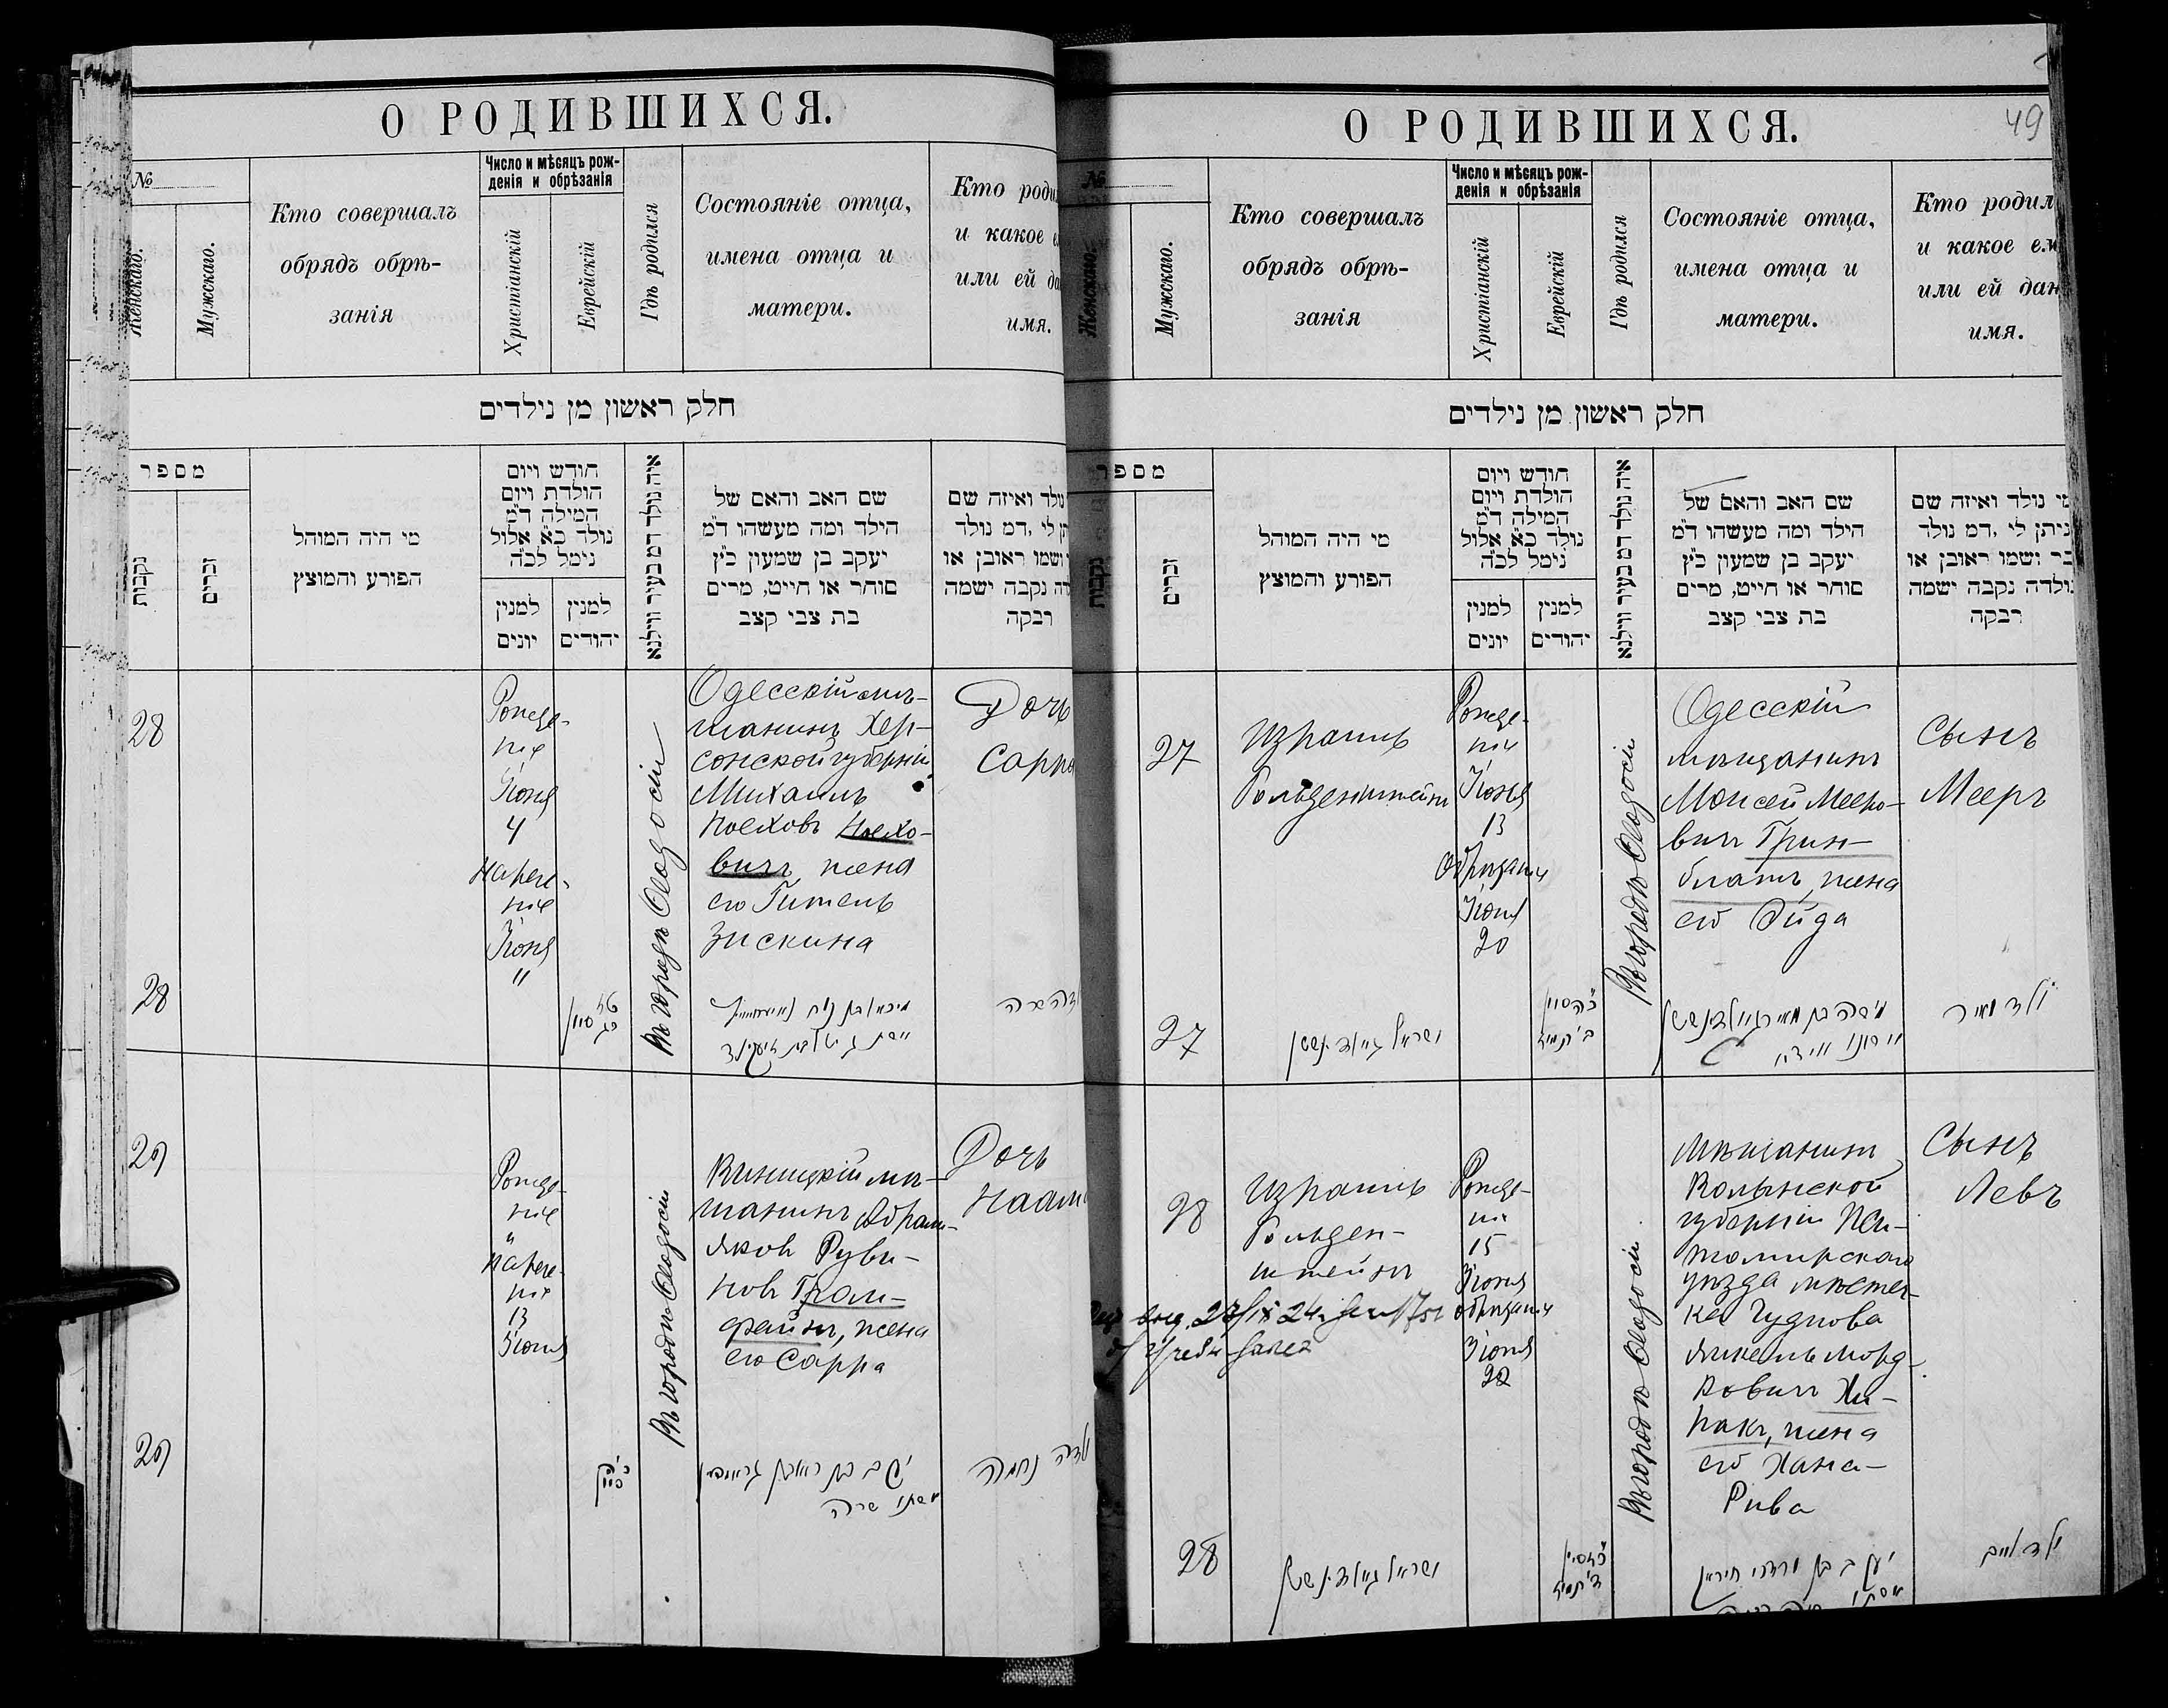 О РОДИВШИХСЯ.
№
Женскаго.
Мужскаго.
Кто совершалъ
обрядъ обрѣ-
занія
Число и мѣсяцъ рож-
денія и обрѣзанія
Христіанскій
Еврейскій
Гдѣ родился
Состояніе отца,
имена отца и
матери.
Кто роди
и какое е
или ей да
имя.
חלק ראשון מן נילדים
מספר
נקבות
זכרים
מי היה המוהל
הפורע והמוצץ
חודש ויום
הולדת ויום
המילה ד״מ
נולד כ״א אלול
נימל לכ״ה
למנין
יונים
למנין
יהודים
איה נולד דמ בעיר ווילנא
שם האב והאם של
הילד ומה מעשהו ד״מ
יעקב בן שמעון כ״ץ
סוחר או חייט, מרים
בת צבי קצב
נולד ואיזה שם
תן לי, דמ נולד
ושמו ראובן או
דה נקבה ישמה
רבקה
28
Рожде-
ніе
Іюня
4
Нарече-
ніе
Іюня
"
Въ городѣ Ѳеодосіи
Одесскій мѣ-
щанинъ Хер-
сонской губерніи
Михаилъ
Ноеховъ Ноехо-
вичъ, жена
его Гитель
Зискина
Дочь
Сарра
28
29
Рожде-
ніе
и
Нарече-
ніе
13
Іюня
Въ городѣ Ѳеодосіи
Виницкій мѣ-
щанинъ Абрам-
Яковъ Руви-
новъ Грам-
файнъ, жена
его Сарра
Дочь
Наам
29
יעקב בן ראובן
אשתו שרה
ילדה נחמה
О РОДИВШИХСЯ.
49
№
Женскаго.
Мужскаго.
Кто совершалъ
обрядъ обрѣ-
занія
Число и мѣсяцъ рож-
денія и обрѣзанія
Христіанскій
Еврейскій
Гдѣ родился
Состояніе отца,
имена отца и
матери.
Кто родил
и какое ем
или ей дан
имя.
חלק ראשון מן נילדים
מספר
נקבות
זכרים
מי היה המוהל
הפורע והמוצץ
חודש ויום
הולדת ויום
המילה ד״מ
נולד כ״א אלול
נימל לכ״ה
למנין
יונים
למנין
יהודים
איה נולד דמ בעיר ווילנא
שם האב והאם של
הילד ומה מעשהו ד״מ
יעקב בן שמעון כ״ץ
סוחר או חייט, מרים
בת צבי קצב
מי נולד ואיזה שם
ניתן לי, דמ נולד
בר ושמו ראובן או
נולדה נקבה ישמה
רבקה
27
Израиль
Гольденштейнъ
Рожде-
ніе
Іюня
13
Обрѣзаніе
Іюня
20
Въ городѣ Ѳеодосіи
Одесскій
мѣщанинъ
Моисей Мееро-
вичъ Грин-
блатъ, жена
его Эйда
Сынъ
Мееръ
27
ישראל גאלדינשטיין
ילד מאיר
28
Израиль
Гольден-
штейнъ
Рожде-
ніе
15
Іюня
обрѣзаніе
Іюня
22
Въ городѣ Ѳеодосіи
Мѣщанинъ
Волынской
губерніи Жи-
томирскаго
уѣзда мѣстеч-
ка Чуднова
Янкель Морд-
ковичъ Хи-
накъ, жена
его Хана-
Рива
Сынъ
Левъ
28
ישראל גאלדינשטיין
יעקב בן מרדכי
ילד לייב